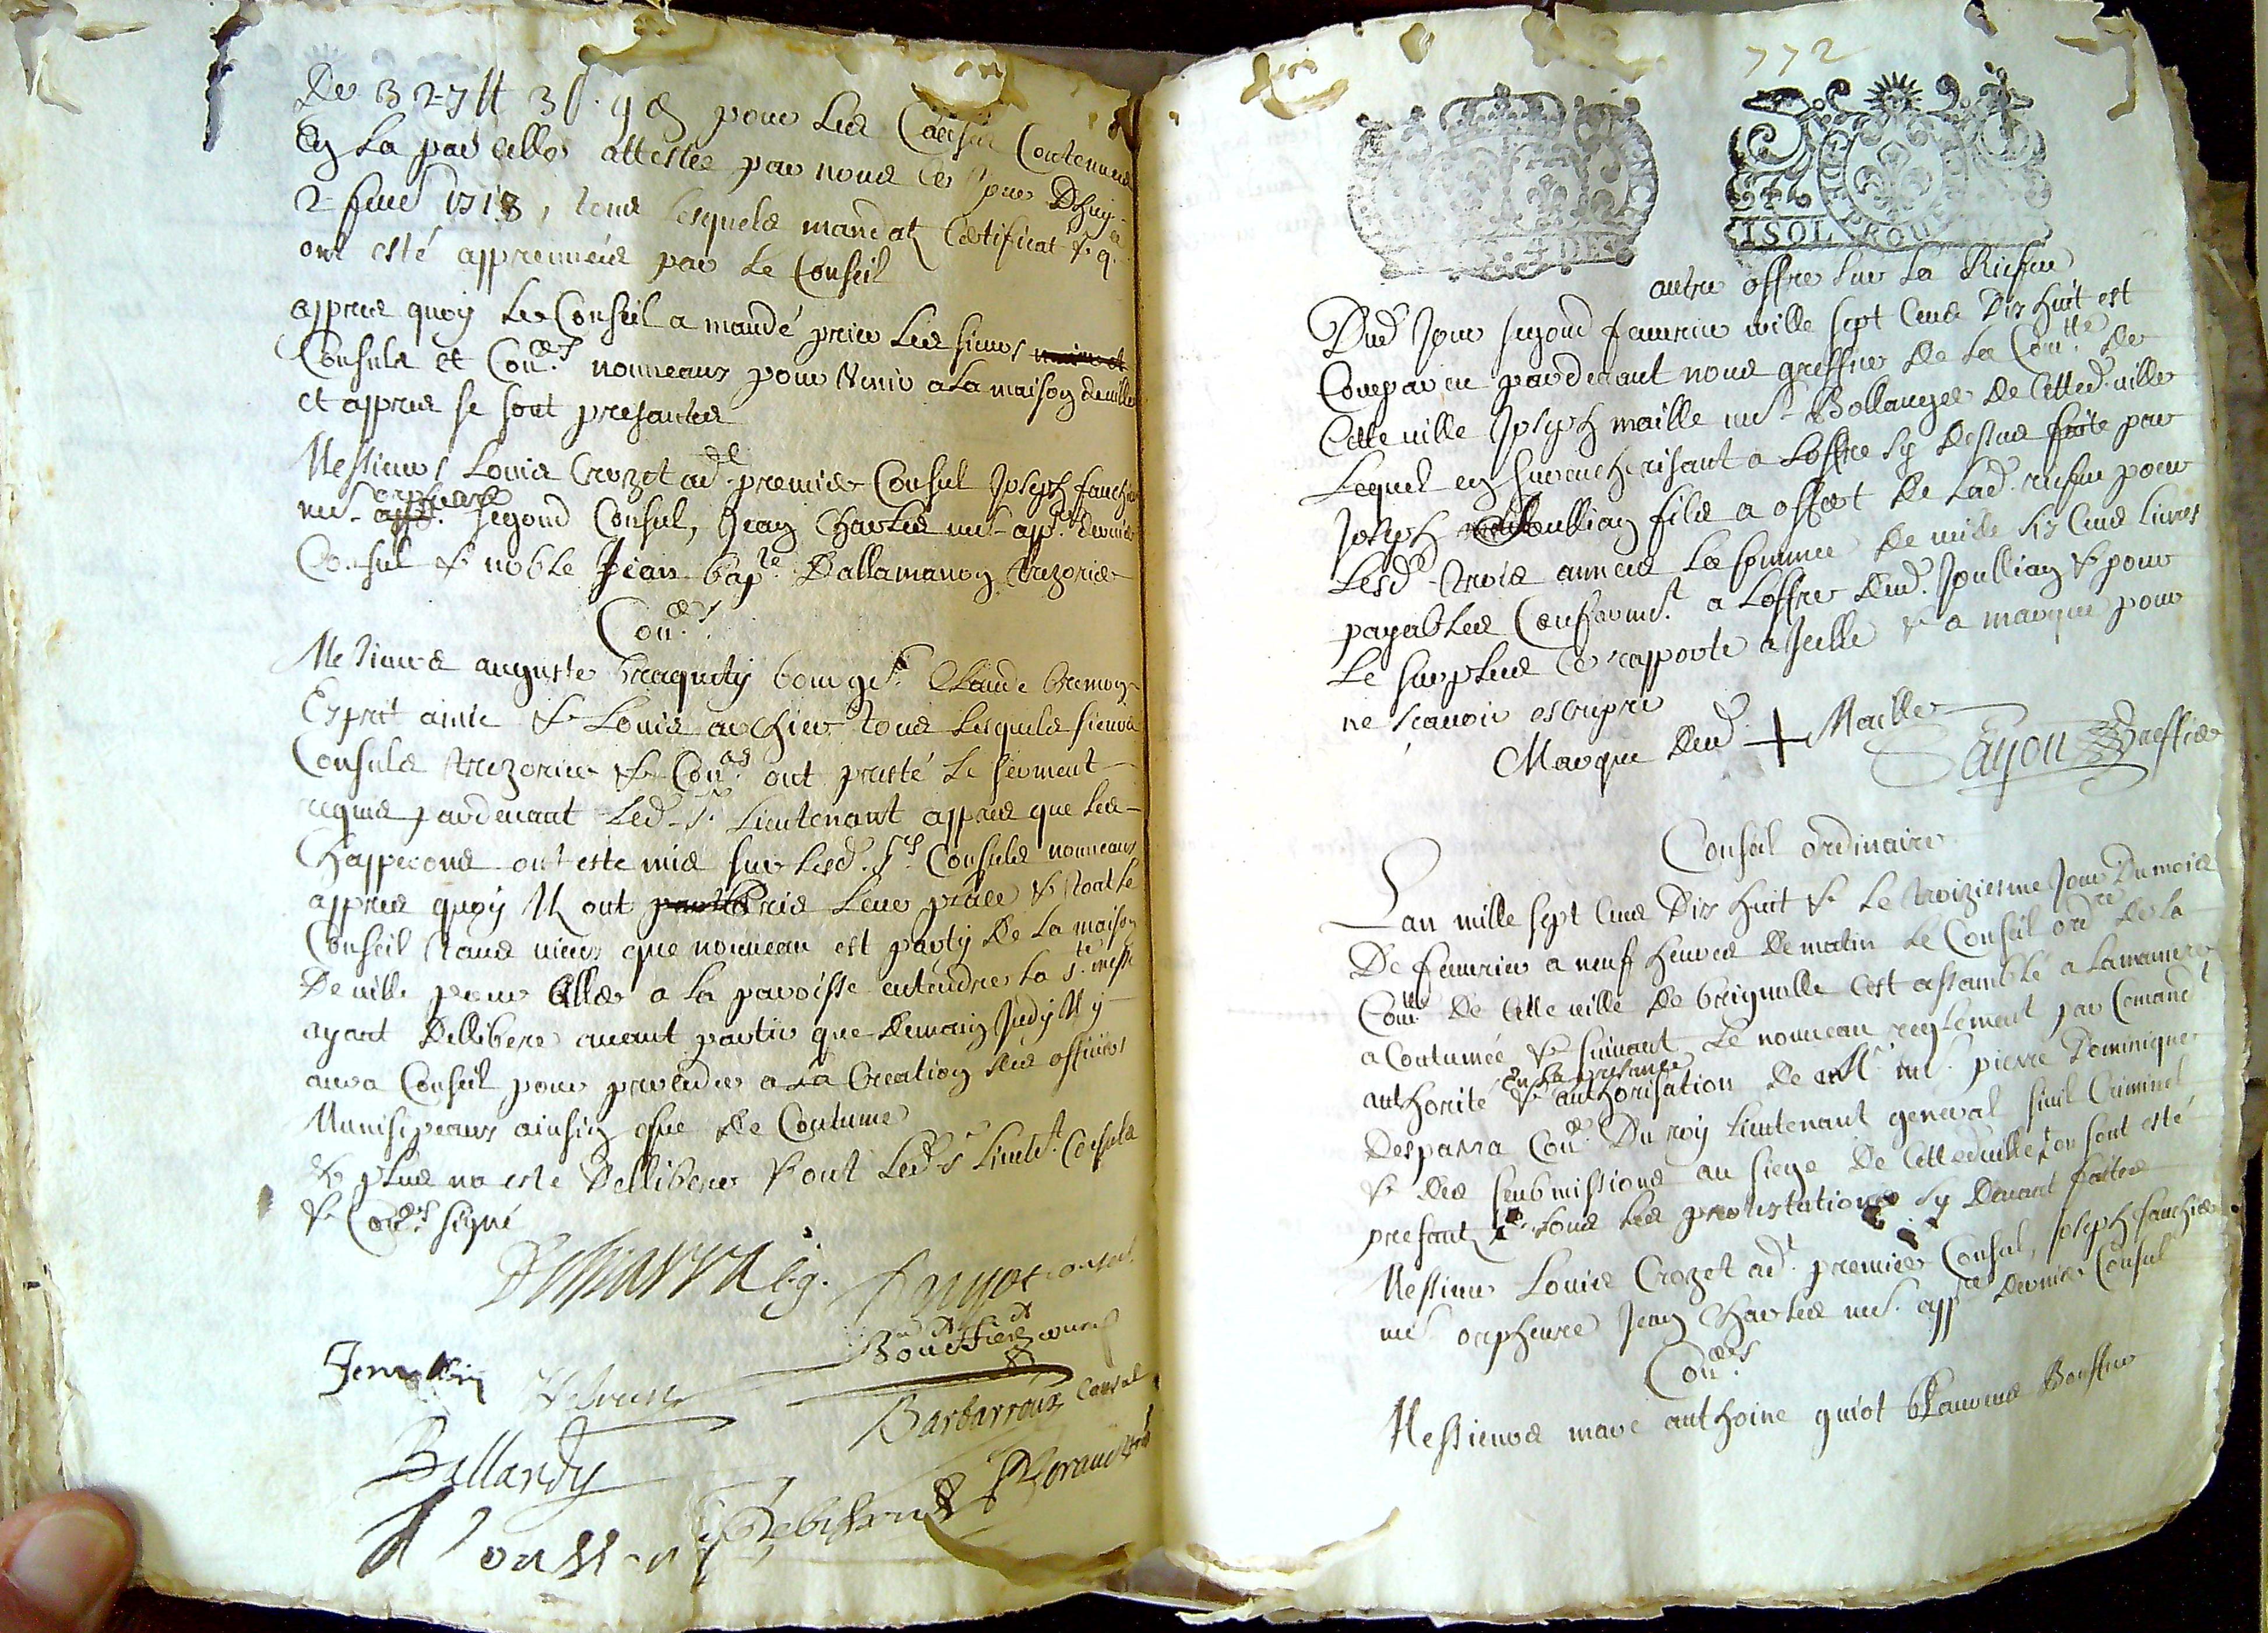 De 327 ₶ 3 s. 9 d pour les Causes Contenues
En La parcelle attestée par nous Ce jour Dhuy
2e feuer 1718, tous lesquels mandatz Certificat & q.
ont esté apprenuéés par Le Conseil
appres quoy Le Conseil a mandé prier Les sieurs
Consuls et Coners. nouueaux pour Venir a La maison de ville
et appres se sont presantés
Messieurs Louis Crozet adt. premier Consul Joseph fauchier
me orpheure segond Consul, Jean Charles me appre. dernier
Consul & noble Jean bapte Dallamanon trezorier
Coners.
Messieurs auguste braquety bourgs. Claude bremond
Esprit amic & Louis archier tous lesquels sieurs
Consuls trezorier & Coners. ont presté le serment
requis pardeuant Led. sr. Lieutenant appres que les
Chapperons ont este mis sur lesd. srs Consuls nouueaux
appres quoy Ilz ont pris leur place & tout le
Conseil tant vieux que nouueau est party De La maison
De ville pour aller a La paroisse entendre La ste. messe
ayant Dellibere auant partir que demain Judy Il y
aura Conseil pour proceder a La Creation des offisiers
Munisipeaux ainsin que de Coutume
& plus na este Dellibere & ont Led. sr Lieutt. Consuls
& Coners signé
Desparra l.g. Guyot consul
Bouffier
Barbarroux Consal
Ballardy
772
ISOL
autre offre sur La Riesue
Dud. Jour segond feurier mille sept Cens Dix huit est
Comparu pardeuant nous greffier de La Comte. de
Cette ville Joseph maille me Bollanger de Cetted. ville
Lequel en surencherisant a Loffre sy dessus faite par
Joseph Joullian fils a offert de Lad. riesue pour
Lesd. trois années La somme de mille six Cens liures
payables Conformt. a Loffre dud. Joullian & pour
Le surplus Ce rapporte a Icelle & a marqué pour
ne scauoir escripre
Marque dud. + Maille
Fayon Greffier
Conseil ordinaire
Lan mille sept Cens Dix huit & Le troiziesme Jour Du mois
De feurier a neuf heures de matin Le Conseil ordre de La
Comte De Cette ville De brignolle Cest assamblé a La maniere
a Coutumée & suiuant Le nouueau reglement par Comandt
en La presance
authorité & authorisation de Me. pierre Dominique
Desparra Coner. Du roy Lieutenant general siuil Criminel
& des soubmissions au siege De Cette d. ville, ou sont esté
presantz tous Les protestations sy deuant faites
Messieurs Louis Crozet adt. premier Consul, Joseph fauchier
me. orpheure Jean Charles me. appre dernier Consul
Coners.
Messieurs marc anthoine guiot